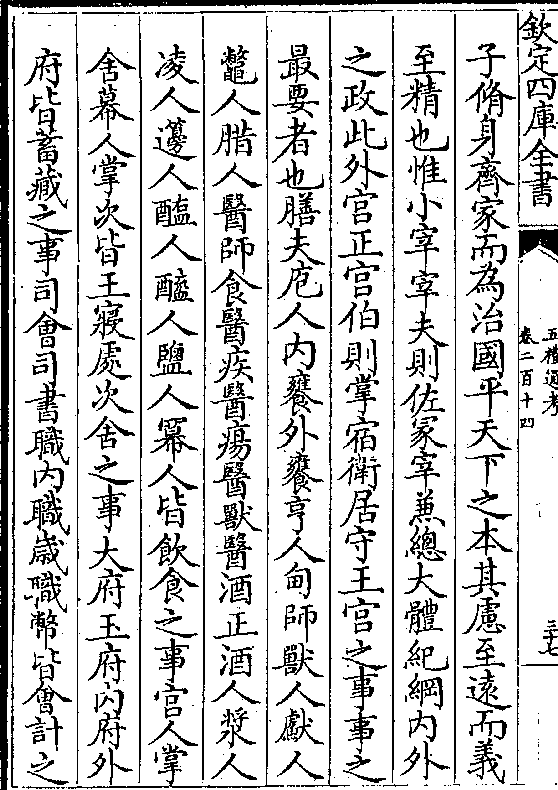 欽定四庫全書
五禮通考
卷二百十四
三十七
子脩身齊家而為治國平天下之本其慮至遠而義
至精也惟小宰宰夫則佐冢宰兼總大體紀綱内外
之政此外宫正宫伯則掌宿衛居守王宫之事事之
最要者也膳夫庖人内饔外饔亨人甸師獸人䱷人
鼈人腊人醫師食醫疾醫瘍醫獸醫酒正酒人漿人
凌人籩人醢人醯人鹽人冪人皆飲食之事宫人掌
舍幕人掌次皆王寢處次舍之事大府玉府内府外
府皆蓄藏之事司會司書職内職歲職幣皆會計之